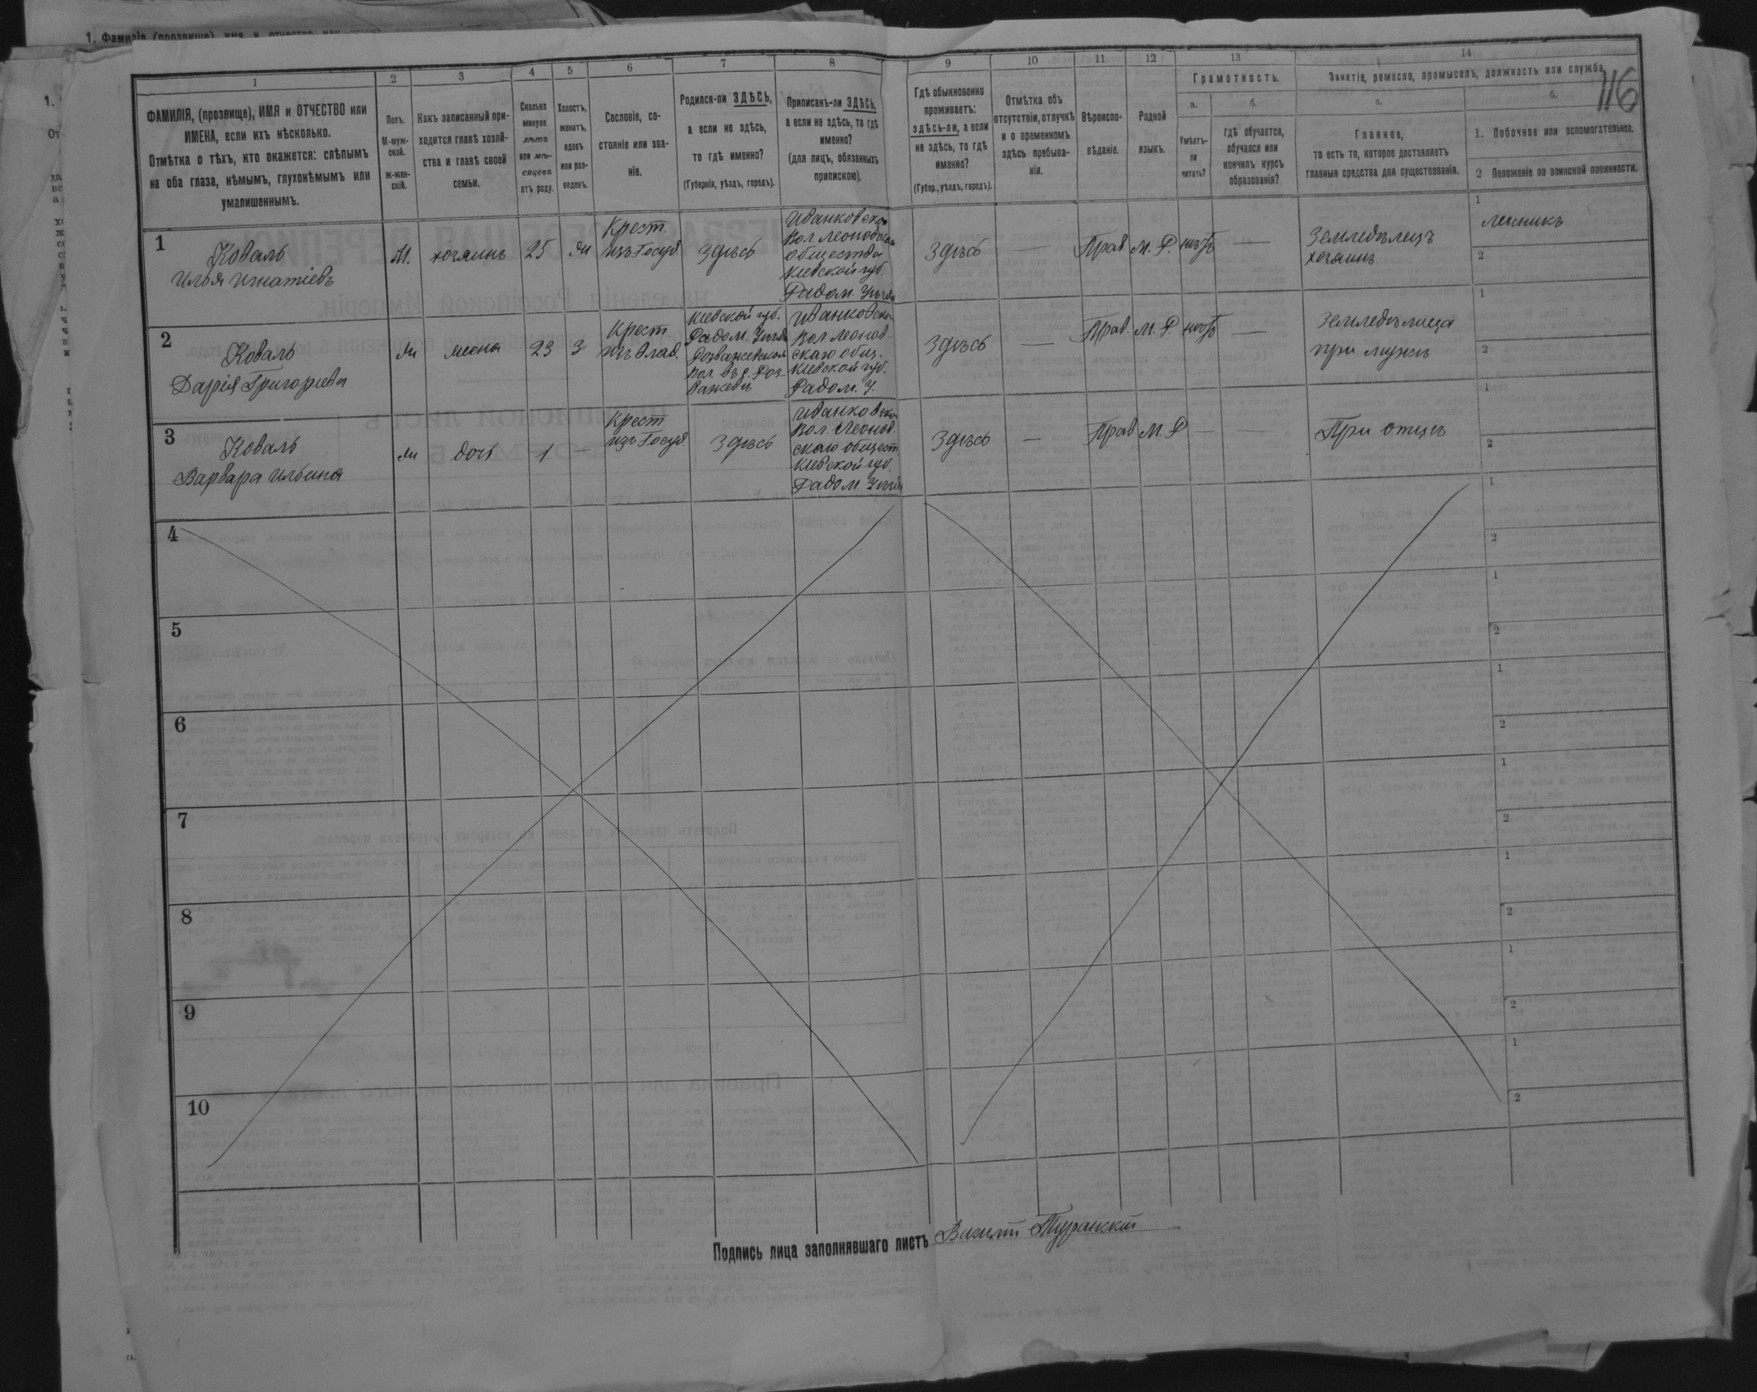 116
1 2 3 4 5 6 7 8 9 10 11 12 13 14
ФАМИЛІЯ, (прозвище), ИМЯ и ОТЧЕСТВО или
ИМЕНА, если ихъ нѣсколько.
Отмѣтка о тѣхъ, кто окажется: слѣпымъ
на оба глаза, нѣмымъ, глухонѣмымъ или
умалишеннымъ.
Полъ.
М-муж-
ской.
ж-жен-
скій.
Какъ записанный при-
ходится главѣ хозяй-
ства и главѣ своей
семьи.
Сколько
минуло
лѣтъ
или мѣ-
сяцевъ
отъ роду.
Холостъ,
женатъ,
вдовъ
или раз-
веденъ.
Сословіе, со-
стояніе или зва-
ніе.
Родился-ли ЗДѢСЬ,
а если не здѣсь,
то гдѣ именно?
(Губернія, уѣздъ, городъ).
Приписанъ-ли ЗДѢСЬ,
а если не здѣсь, то гдѣ
именно?
(для лицъ, обязанныхъ
припискою).
Гдѣ обыкновенно
проживаетъ:
здѣсь-ли, а если
не здѣсь, то гдѣ
именно?
(Губер., уѣздъ, городъ).
Отмѣтка объ
отсутствіи, отлучкѣ
и о временномъ
здѣсь пребыва-
ніи.
Вѣроиспо-
вѣданіе.
Родной
языкъ.
Грамотность.
а.
Умѣетъ-
ли
читать?
б.
гдѣ обучается,
обучался или
кончилъ курсъ
образованія?
Занятіе, ремесло, промыселъ, должность или служба.
а.
Главное,
то есть то, которое доставляетъ
главныя средства для существованія.
б.
1. Побочное или вспомогательное.
2 Положеніе по воинской повинности.
1
Коваль
Илья Игнатіевъ
М.
хозяинъ
25
ж
Крест.
изъ Госуд
здѣсь
Иванковско
Вол Леоновска
общества
Кіевской губ
Радом. Уѣзда
здѣсь
—
Прав
М. Р.
нѣтъ
—
Земледѣлецъ
хозяинъ
1
лесникъ
2
2
Коваль
Дарія Григорьева
ж
жена
23
з
Крест.
изъ Влад.
Кіевской губ.
Радом. Уѣзда
Здѣсь
Иванковско
Вол Леонов-
скаго общ.
Кіевской губ.
Радом. У.
—
Прав.
М. Р
нѣтъ
—
Земледѣлица
при мужѣ
1
2
3
Коваль
Варвара Ильина
ж
дочь
1
—
Крест.
изъ Госуд
Здѣсь
Иванковско
Вол Леонов
скаго общест
Кіевской губ.
Радом. Уѣзда
Здѣсь
—
Прав
М. Р
—
При отцѣ
1
2
4
1
2
5
1
2
6
1
2
7
1
2
8
1
2
9
1
2
10
1
2
Подпись лица заполнявшаго листъ